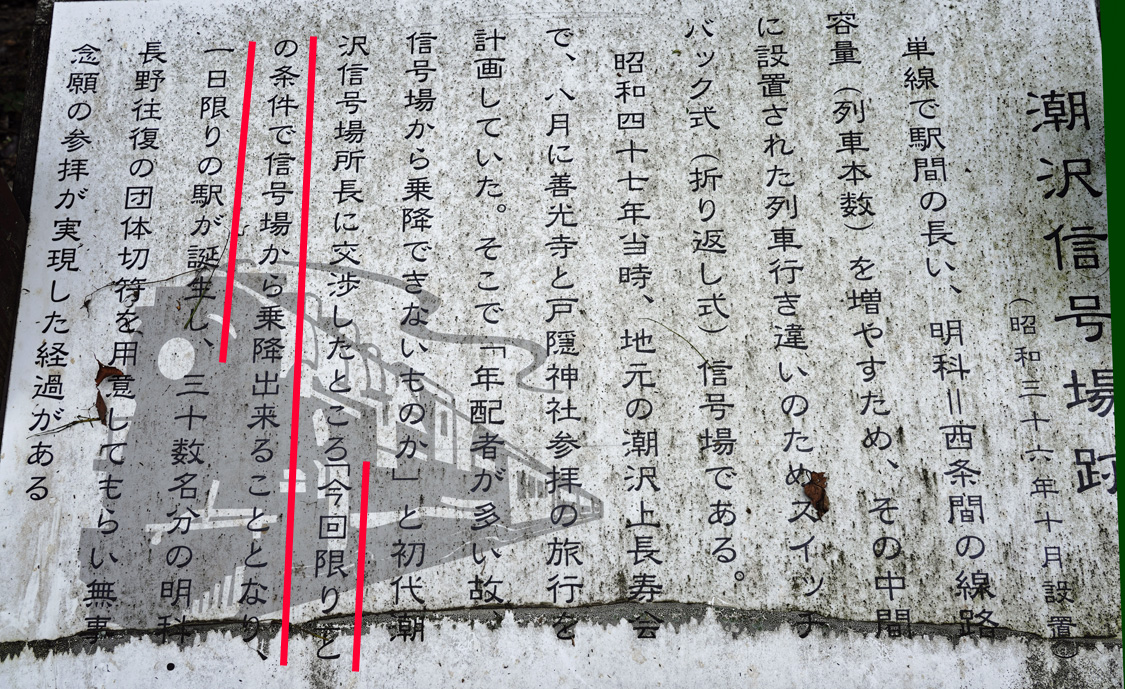 潮沢信号場跡
(昭和三十六年十月設置)
単線で駅間の長い、明科=西条間の線路
容量(列車本数)を増やすため、その中間
に設置された列車行き違いのためスイッチ
バック式(折り返し式)信号場である。
昭和四十七年当時、地元の潮沢上長寿会
で、八月に善光寺と戸隠神社参拝の旅行を
計画していた。そこで「年配者が多い故、
信号場から乗降できないものか」と初代潮
沢信号場所長に交渉したところ「今回限りと
の条件で信号場から乗降出来ることとなり、
一日限りの駅が誕生し、三十数名分の明科
長野往復の団体切符を用意してもらい無事
念願の参拝が実現した経過がある